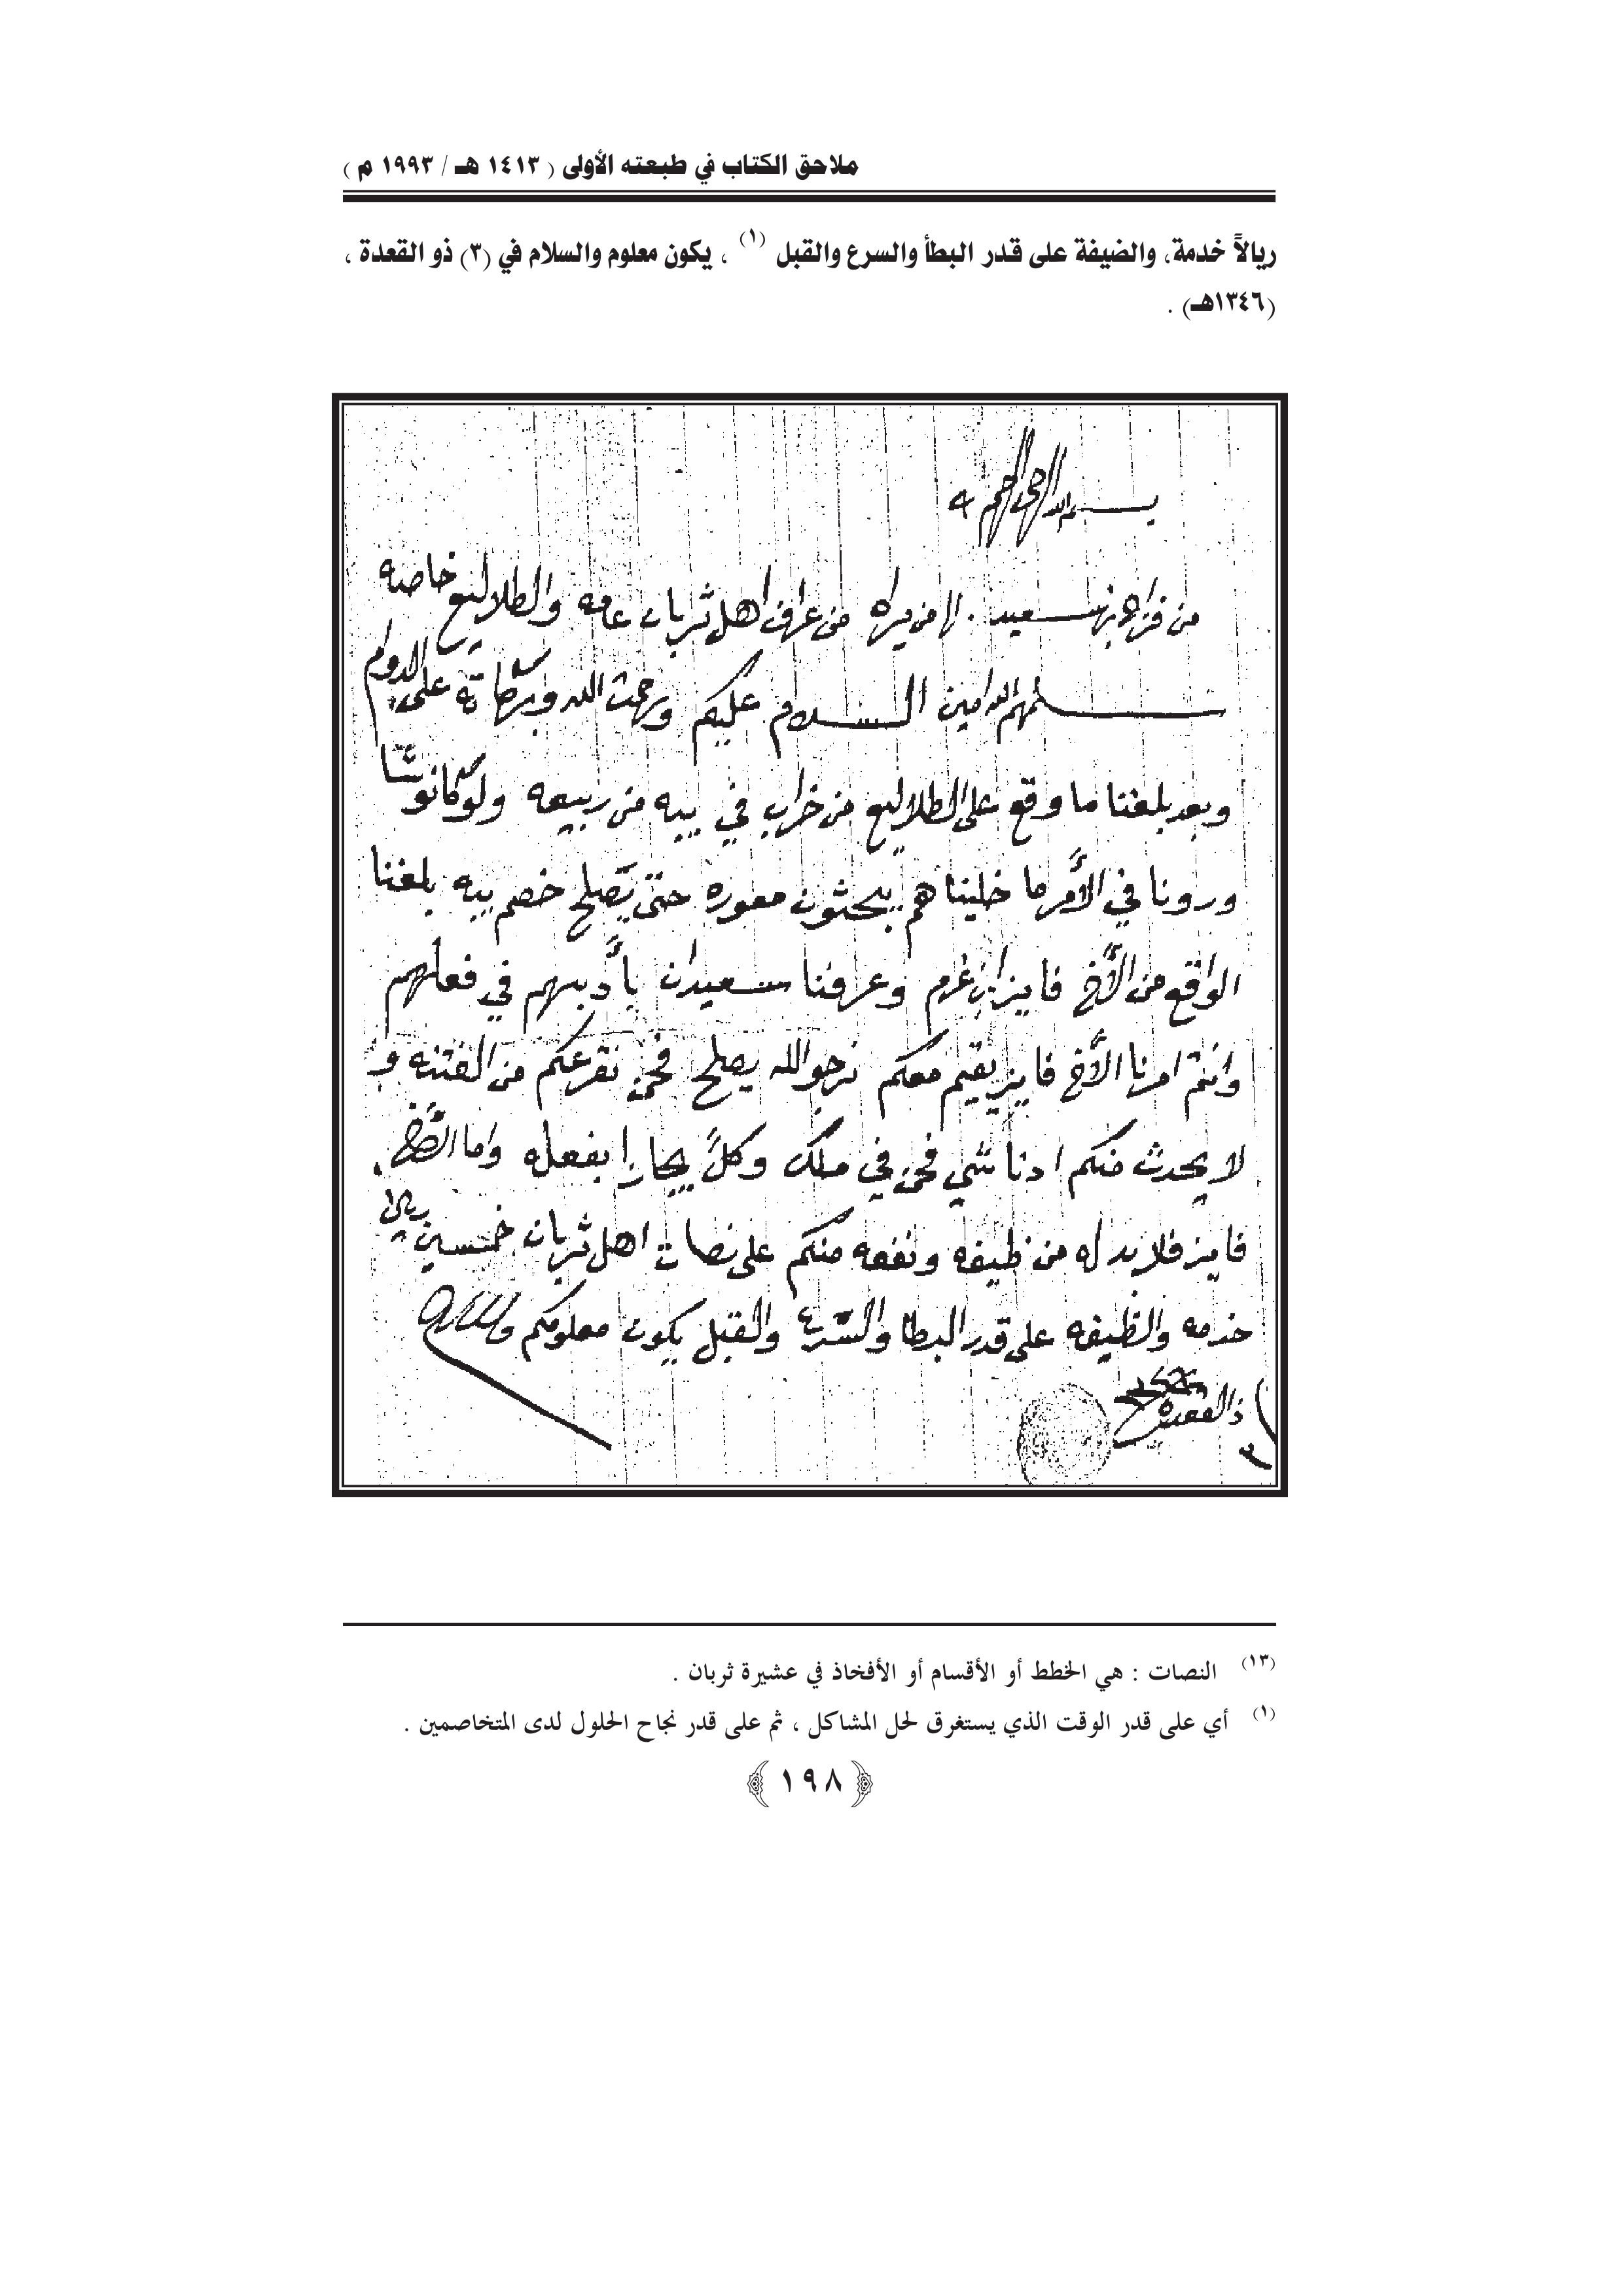 ملاحق الكتاب في طبعته الأولى ( ١٤١٣ هـ / ١٩٩٣ م )
ريالاً خدمة، والضيفة على قدر البطأ والسرع والقبل (١) ، يكون معلوم والسلام في (٣) ذو القعدة ،
(١٣٤٦هـ) .
بسم الله الرحمن الرحيم
من فزاع بن سعيد الا من يراه من عراف اهل ثربان عامه والطلاليع خاصه
سلمهم الله امين السلام عليكم ورحمت الله وبركاته على الدوام
وبعد بلغنا ما وقع على الطلاليع من خراب في بيه من ربيعه ولو كانو شا
ورونا في الأمر ما خليناهم يبحثون معوره حتى يصلح خصم بيه بلغنا
الواقع من الأخ فايز ابن غرم وعرفنا سعيدان يأدبهم في فعلهم
وانتم امرنا الأخ فايز يقيم معكم نرجو الله يصلح فحن نقرعكم من الفتنه و
لا يحدث منكم ادنا شي فحن في ملك وكلً يجازا بفعله واما
فايز فلابد له من ظيفه ونفعه منكم على نصات اهل ثربان خمسين ريال
خدمه والظيفه على قدر البطا والسرع والقبل يكون معلومكم والسلام
٣ ذالقعده
(١٣) النصات : هي الخطط أو الأقسام أو الأفخاذ في عشيرة ثربان .
(١) أي على قدر الوقت الذي يستغرق لحل المشاكل ، ثم على قدر نجاح الحلول لدى المتخاصمين .
١٩٨